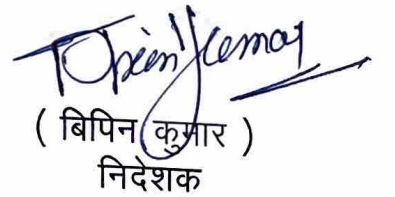 Bipin Kumar
( बिपिन कुमार )
निदेशक